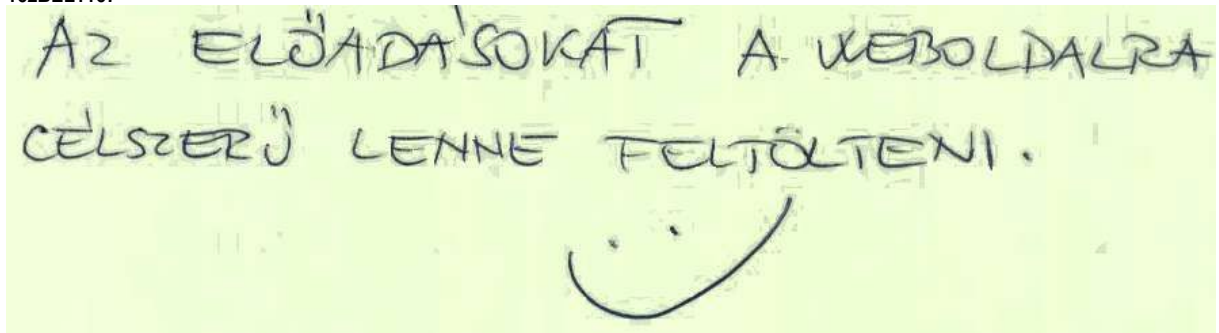 AZ ELŐADÁSOKAT A WEBOLDALRA
CÉLSZERŰ LENNE FELTÖLTENI.